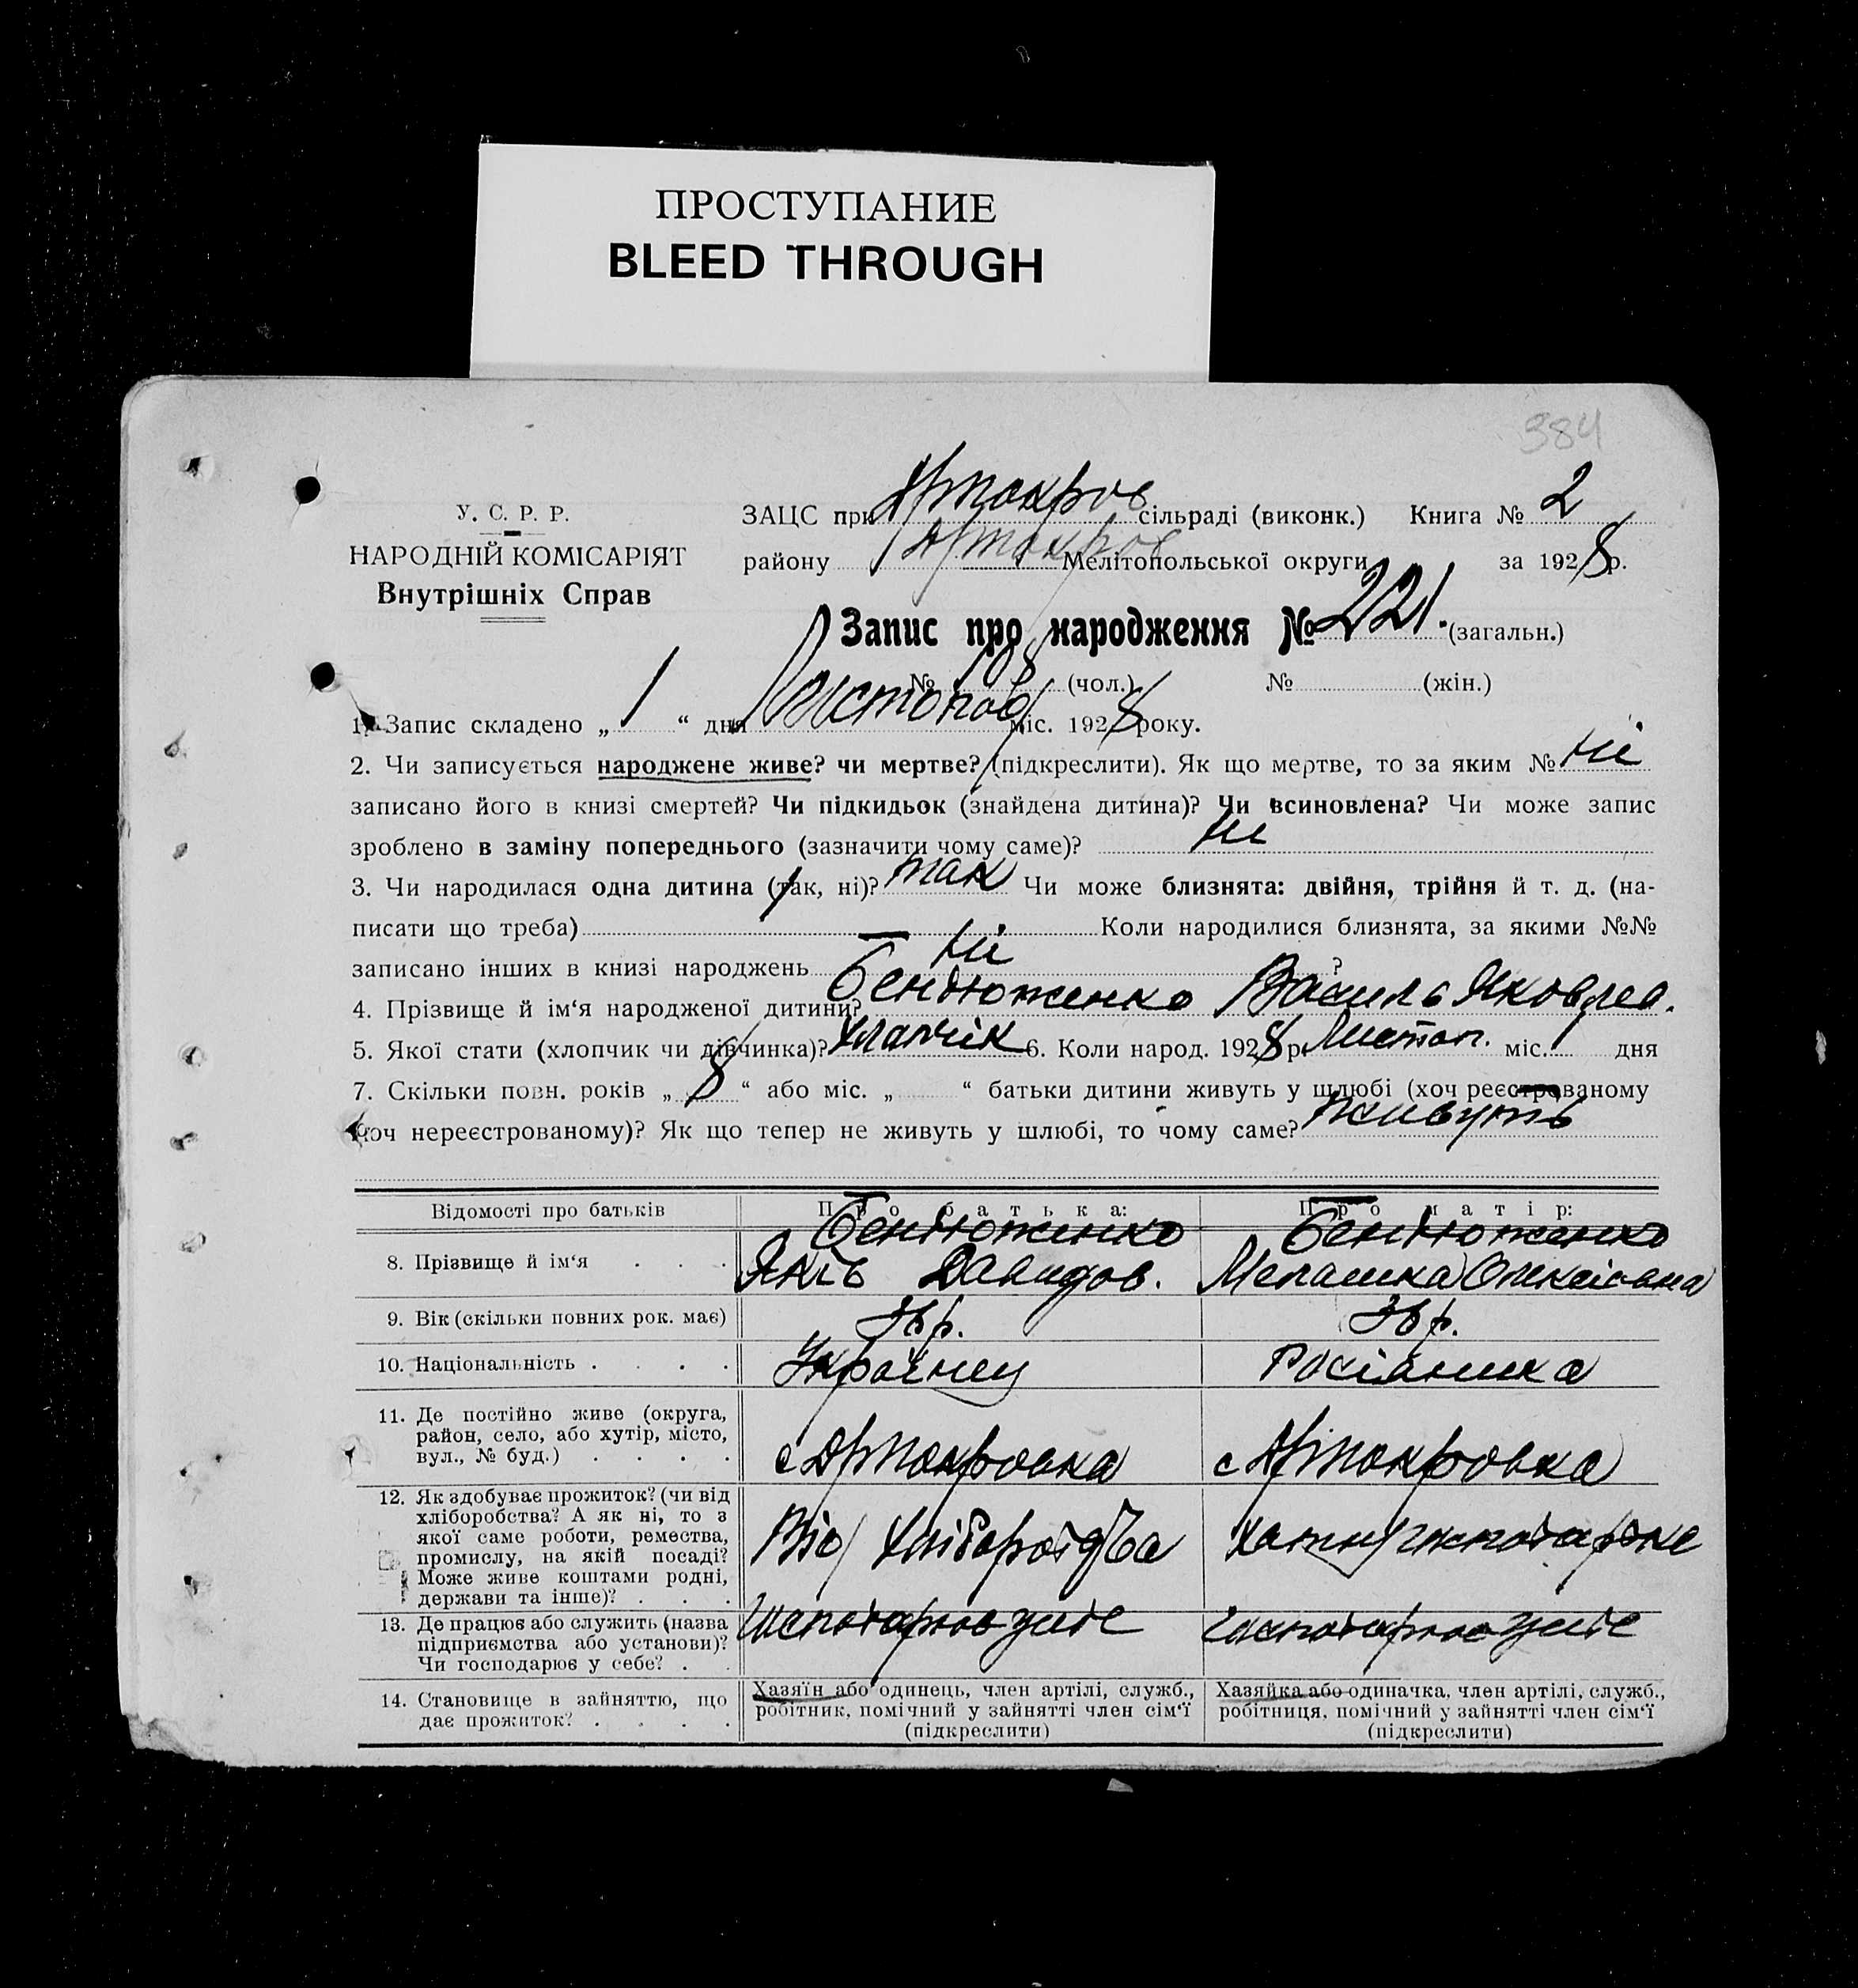 ПРОСТУПАНИЕ
BLEED THROUGH
384
У. С. Р. Р.
НАРОДНІЙ КОМІСАРІЯТ
Внутрішніх Справ
ЗАЦС при Яртокров сільраді (виконк.) Книга № 2
району Мелітопольської округи за 1928 р.
Запис про народження № 221. (загальн.)
№ 108 (чол.) № (жін.)
1. Запис складено „ 1 “ дня Листопад міс. 1928 року.
2. Чи записується народжене живе? чи мертве? (підкреслити). Як що мертве, то за яким № ні
записано його в книзі смертей? Чи підкидьок (знайдена дитина)? Чи всиновлена? Чи може запис
зроблено в заміну попереднього (зазначити чому саме)? ні
3. Чи народилася одна дитина (так, ні)? так Чи може близнята: двійня, трійня й т. д. (на-
писати що треба) Коли народилися близнята, за якими №№
записано інших в книзі народжень ні ?
4. Прізвище й ім‘я народженої дитини? Бендюженко Василь Яковлев.
5. Якої стати (хлопчик чи дівчинка)? хлапчік 6. Коли народ. 1928 р. Листоп. міс. 1 дня
7. Скільки повн. років „ 8 “ або міс. „ “ батьки дитини живуть у шлюбі (хоч реєстрованому
хоч нереєстрованому)? Як що тепер не живуть у шлюбі, то чому саме? живуть
Відомості про батьків Про батька: Про матір:
Бендюженко Бендюженко
8. Прізвище й ім‘я . . . Яків Давидов. Мелашка Олексіовна
9. Вік (скільки повних рок. має)
10. Національність . . . . Україนец Росіянка
11. Де постійно живе (округа,
район, село, або хутір, місто,
вул., № буд.) . . . . с
12. Як здобуває прожиток? (чи від
хліборобства? А як ні, то з
якої саме роботи, ремества,
промислу, на якій посаді?
Може живе коштами родні,
держави та інше)? . . . Від
13. Де працює або служить (назва
підприємства або установи)?
Чи господарює у себе? . .
14. Становище в зайняттю, що
дає прожиток? . . . .
Хазяїн або одинець, член артілі, служб.,
робітник, помічний у зайнятті член сім‘ї
(підкреслити)
Хазяйка або одиначка, член артілі, служб.,
робітниця, помічний у зайнятті член сім‘ї
(підкреслити)